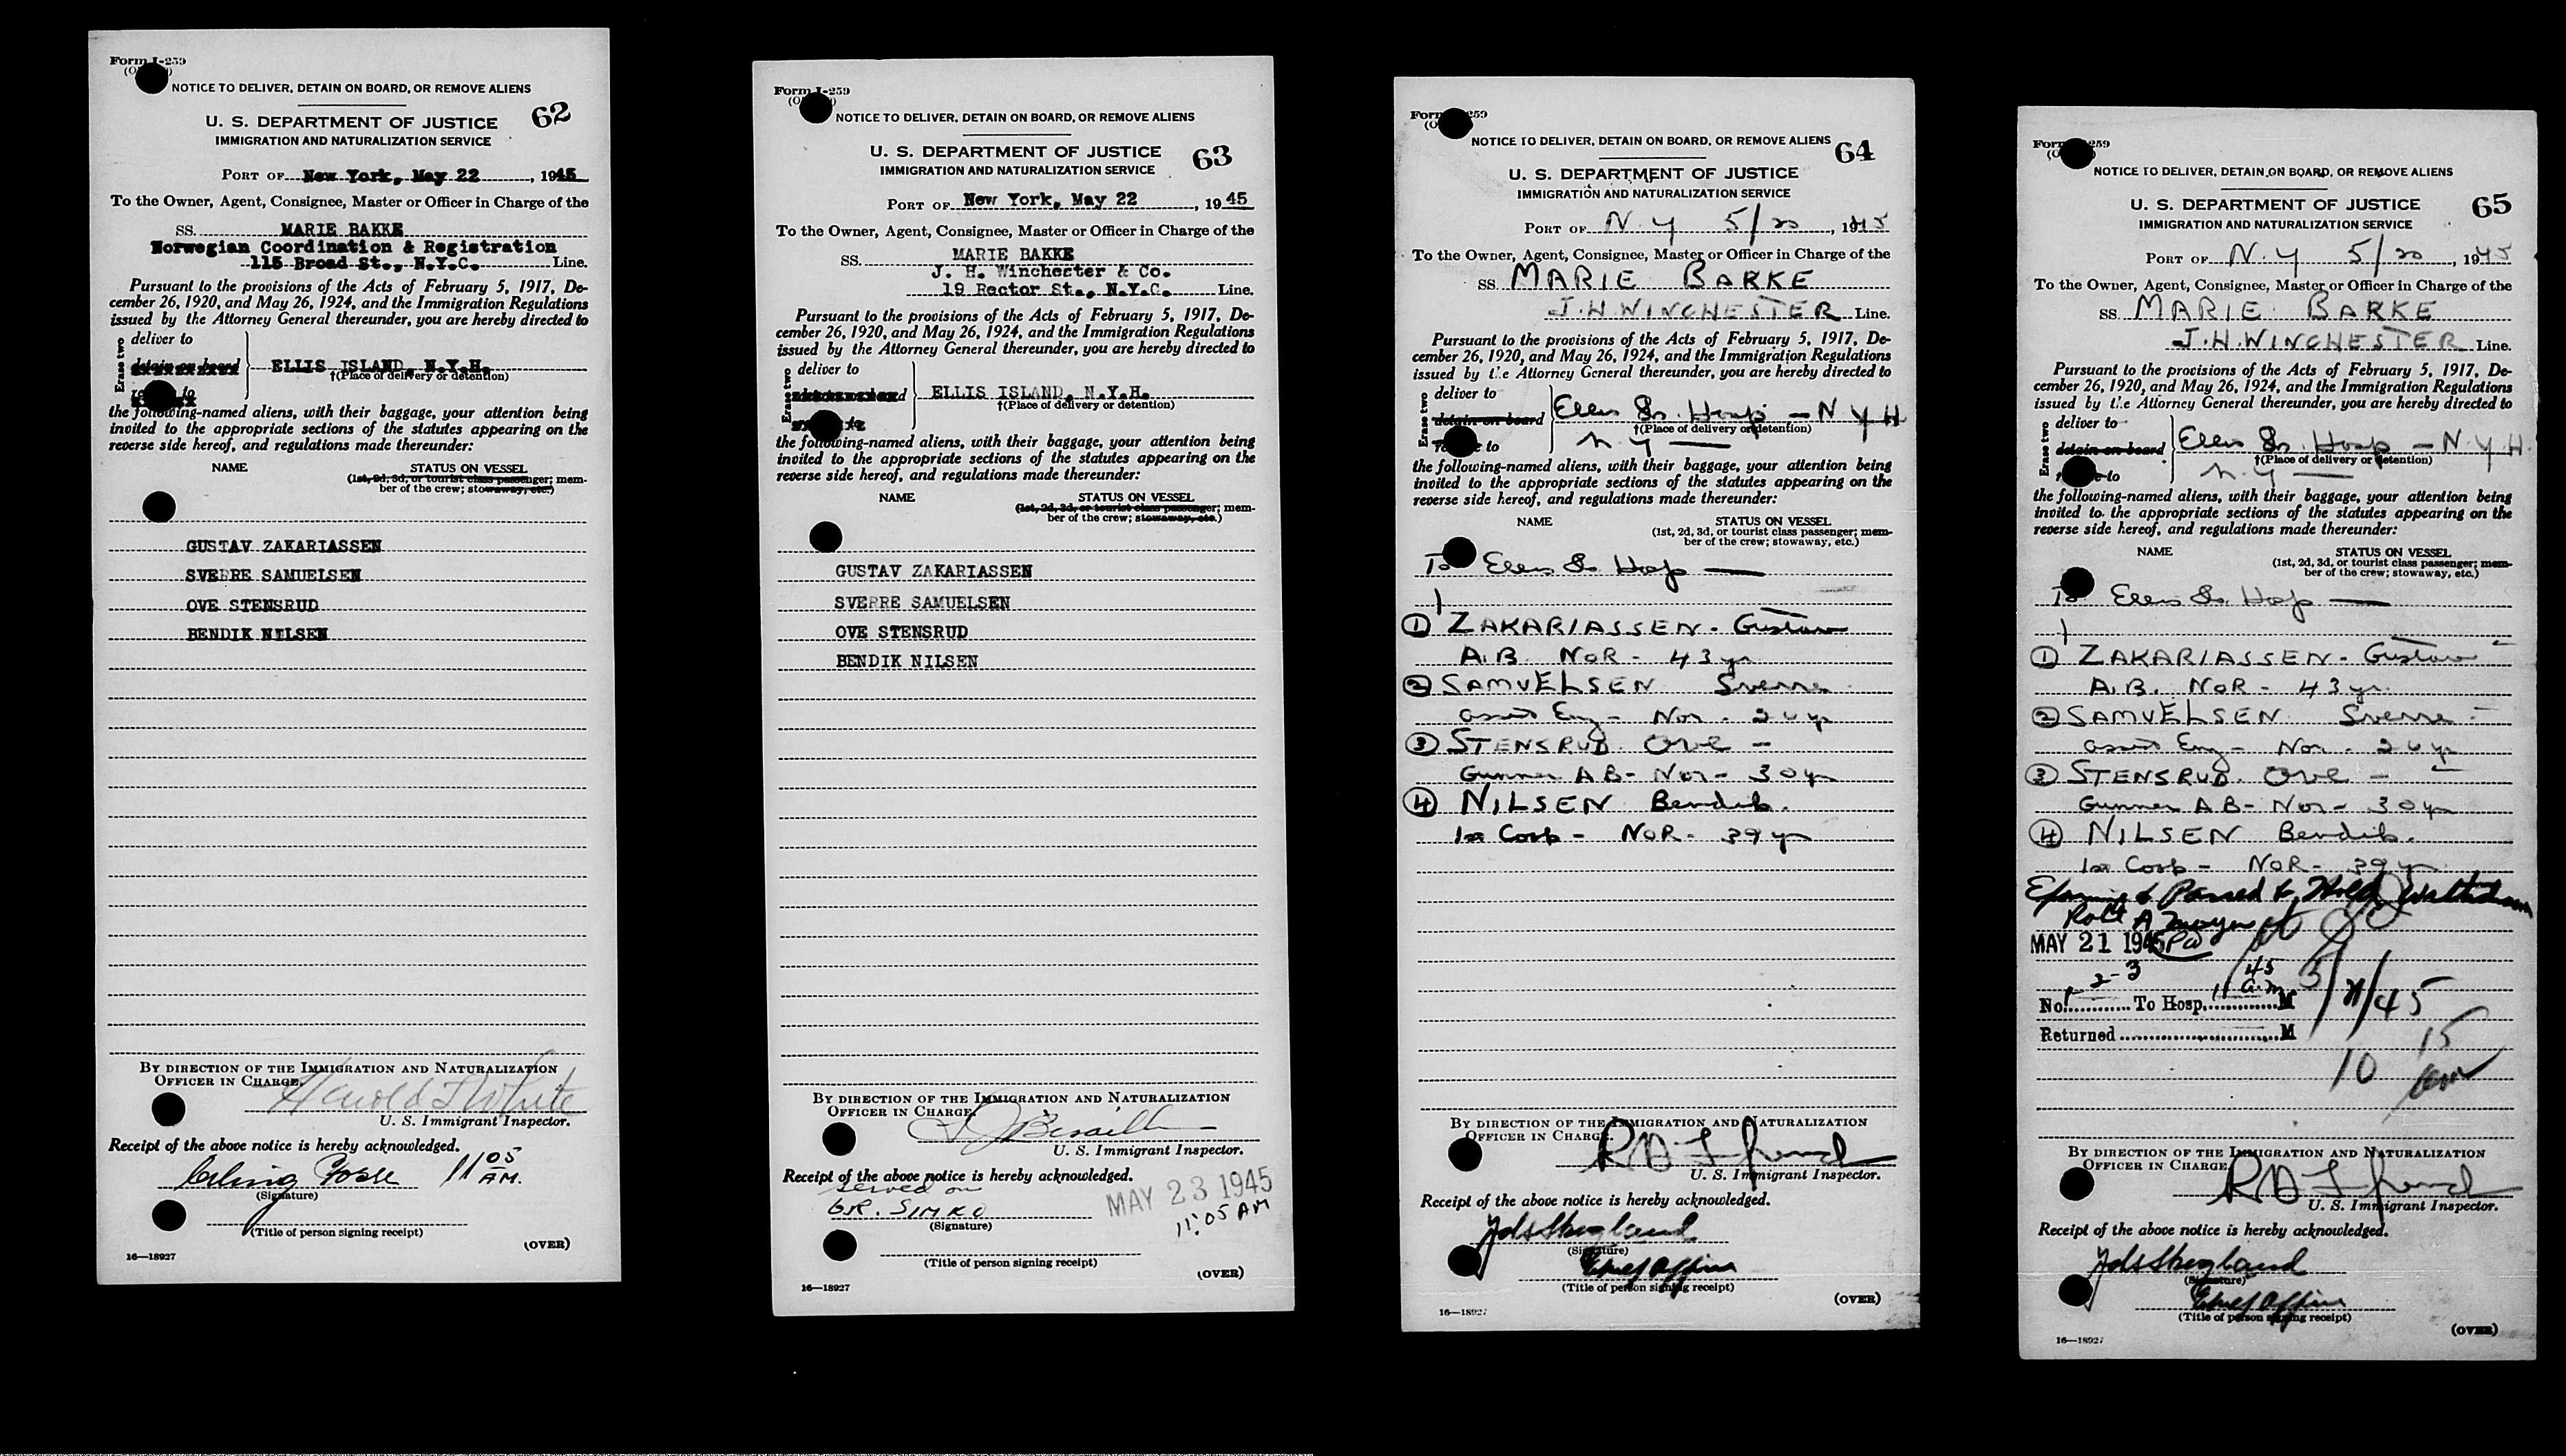 Form I-259
NOTICE TO DELIVER, DETAIN ON BOARD, OR REMOVE ALIENS
62
U. S. DEPARTMENT OF JUSTICE
IMMIGRATION AND NATURALIZATION SERVICE
PORT OF New York, May 22, 1945
To the Owner, Agent, Consignee, Master or Officer in Charge of the
SS. MARIE BAKKE
Norwegian Coordination & Registration
115 Broad St., N.Y.C. Line.
Pursuant to the provisions of the Acts of February 5, 1917, De-
cember 26, 1920, and May 26, 1924, and the Immigration Regulations
issued by the Attorney General thereunder, you are hereby directed to
Erase two
deliver to
detain on board
ELLIS ISLAND, N.Y.H.
†(Place of delivery or detention)
to
the following-named aliens, with their baggage, your attention being
invited to the appropriate sections of the statutes appearing on the
reverse side hereof, and regulations made thereunder:
NAME STATUS ON VESSEL
(1st, 2d, 3d, or tourist class passenger; mem-
ber of the crew; stowaway, etc.)
GUSTAV ZAKARIASSEN
SVERRE SAMUELSEN
OVE STENSRUD
BENDIK NILSEN
BY DIRECTION OF THE IMMIGRATION AND NATURALIZATION
OFFICER IN CHARGE.
Harold J White
U. S. Immigrant Inspector.
Receipt of the above notice is hereby acknowledged.
11 05 AM.
(Signature)
(Title of person signing receipt)
16—18927 (OVER)
Form I-259
NOTICE TO DELIVER, DETAIN ON BOARD, OR REMOVE ALIENS
63
U. S. DEPARTMENT OF JUSTICE
IMMIGRATION AND NATURALIZATION SERVICE
PORT OF New York, May 22, 1945
To the Owner, Agent, Consignee, Master or Officer in Charge of the
SS. MARIE BAKKE
J. H. Winchester & Co.
19 Rector St., N.Y.C. Line.
Pursuant to the provisions of the Acts of February 5, 1917, De-
cember 26, 1920, and May 26, 1924, and the Immigration Regulations
issued by the Attorney General thereunder, you are hereby directed to
Erase two
deliver to
ELLIS ISLAND, N.Y.H.
†(Place of delivery or detention)
the following-named aliens, with their baggage, your attention being
invited to the appropriate sections of the statutes appearing on the
reverse side hereof, and regulations made thereunder:
NAME STATUS ON VESSEL
(1st, 2d, 3d, or tourist class passenger; mem-
ber of the crew; stowaway, etc.)
GUSTAV ZAKARIASSEN
SVERRE SAMUELSEN
OVE STENSRUD
BENDIK NILSEN
BY DIRECTION OF THE IMMIGRATION AND NATURALIZATION
OFFICER IN CHARGE.
U. S. Immigrant Inspector.
Receipt of the above notice is hereby acknowledged.
served on
MAY 23 1945
SIMKO
11:05 AM
(Signature)
(Title of person signing receipt)
16—18927 (OVER)
Form 259
NOTICE TO DELIVER, DETAIN ON BOARD, OR REMOVE ALIENS
64
U. S. DEPARTMENT OF JUSTICE
IMMIGRATION AND NATURALIZATION SERVICE
PORT OF N.Y 5/20, 1945
To the Owner, Agent, Consignee, Master or Officer in Charge of the
SS. MARIE BAKKE
J.H. WINCHESTER Line.
Pursuant to the provisions of the Acts of February 5, 1917, De-
cember 26, 1920, and May 26, 1924, and the Immigration Regulations
issued by the Attorney General thereunder, you are hereby directed to
Erase two
deliver to
detain on board
Ellis Is. Hosp — N Y H
†(Place of delivery or detention)
to N Y
the following-named aliens, with their baggage, your attention being
invited to the appropriate sections of the statutes appearing on the
reverse side hereof, and regulations made thereunder:
NAME STATUS ON VESSEL
(1st, 2d, 3d, or tourist class passenger; mem-
ber of the crew; stowaway, etc.)
To Ellis Is. Hosp —
① ZAKARIASSEN - Gustav
A.B. NOR - 43 yr
② SAMUELSEN Sverre
asst Eng - Nor. 26 yr
③ STENSRUD Ove -
Gunner A B - Nor - 30 yr
④ NILSEN Bendik.
1st Cook - NOR - 39 yr
BY DIRECTION OF THE IMMIGRATION AND NATURALIZATION
OFFICER IN CHARGE.
U. S. Immigrant Inspector.
Receipt of the above notice is hereby acknowledged.
(Signature)
Chief Officer
(Title of person signing receipt)
16—18927 (OVER)
Form 259
NOTICE TO DELIVER, DETAIN ON BOARD, OR REMOVE ALIENS
65
U. S. DEPARTMENT OF JUSTICE
IMMIGRATION AND NATURALIZATION SERVICE
PORT OF N.Y 5/20, 1945
To the Owner, Agent, Consignee, Master or Officer in Charge of the
SS. MARIE BAKKE
J.H. WINCHESTER Line.
Pursuant to the provisions of the Acts of February 5, 1917, De-
cember 26, 1920, and May 26, 1924, and the Immigration Regulations
issued by the Attorney General thereunder, you are hereby directed to
Erase two
deliver to
detain on board
Ellis Is. Hosp — N Y H
†(Place of delivery or detention)
to N Y
the following-named aliens, with their baggage, your attention being
invited to the appropriate sections of the statutes appearing on the
reverse side hereof, and regulations made thereunder:
NAME STATUS ON VESSEL
(1st, 2d, 3d, or tourist class passenger; mem-
ber of the crew; stowaway, etc.)
To Ellis Is. Hosp —
① ZAKARIASSEN - Gustav
A.B. NOR - 43 yr
② SAMUELSEN Sverre
asst Eng - Nor. 26 yr
③ STENSRUD. Ove -
Gunner A B - Nor - 30 yr
④ NILSEN Bendik.
1st Cook - NOR - 39 yr
Passed to
Robt A
MAY 21 1945
No. 1-2-3 To Hosp. 11 45 a.m M 5/21/45
Returned M
10 15
BY DIRECTION OF THE IMMIGRATION AND NATURALIZATION
OFFICER IN CHARGE
U. S. Immigrant Inspector.
Receipt of the above notice is hereby acknowledged.
(Signature)
Chief Officer
(Title of person signing receipt)
16—18927 (OVER)